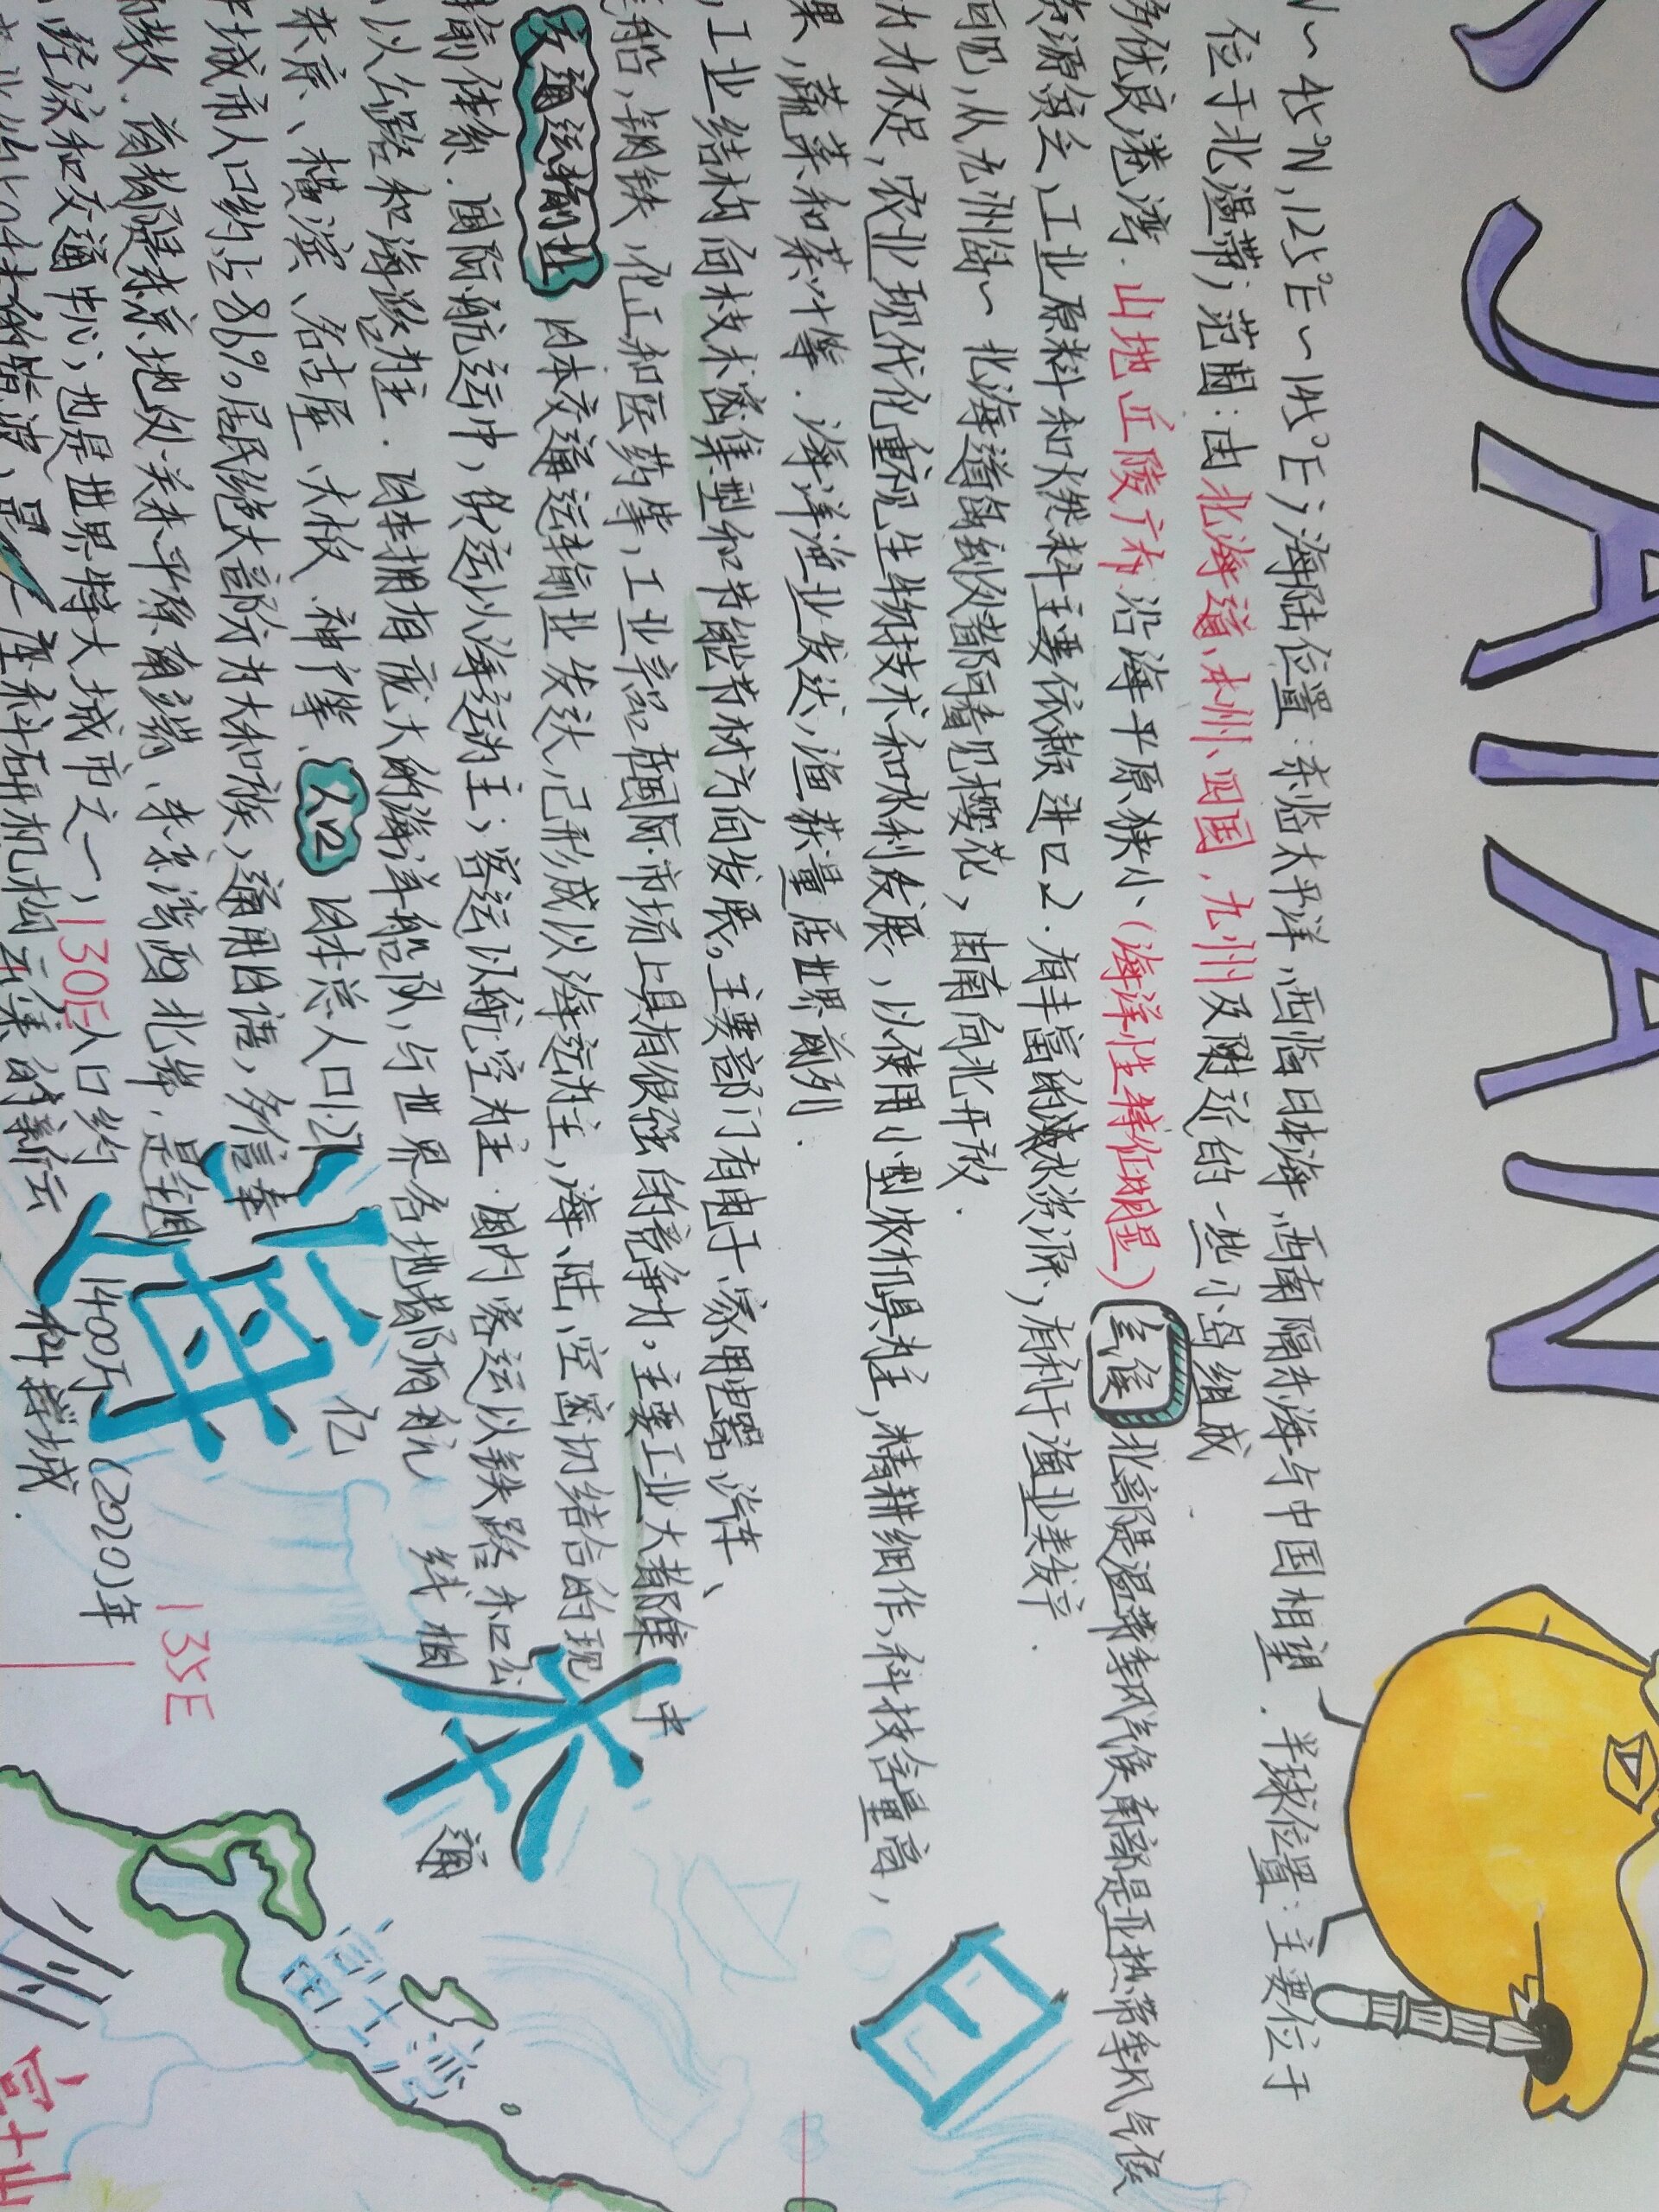 JAPAN
N～45°N，125°E～145°E；海陆位置：东临太平洋、西临日本海、西南隔东海与中国相望．半球位置：主要位于
位于北温带；范围：由北海道、本州、四国、九州及附近的一些小岛组成
多优良港湾．山地丘陵广布 沿海平原狭小（海洋性特征明显） 气候 北部是温带季风气候南部是亚热带季风气候
资源贫乏，工业原料和燃料主要依赖进口2．有丰富的水资源，有利于渔业类发辛．
可见，从九州岛～北海道岛纵都可看见樱花，由南向北开放．
力不足，农业现代化重视生物技术和水利发展，以使用小型农机具为主，精耕细作，科技含量高，
果，蔬菜和茶叶等．海洋渔业发达，渔获量居世界前列．
工业结构向枝术密集型和节能节材方向发展。主要部门有电子、家用电器、汽车、
船，钢铁，化工和医药等，工业产品在国际市场上具有很强的竞争力。主要工业大都集中
交通运输业 日本交通运输业发达，已形成以海运为主，海、陆、空密切结合的现
输体系．国际航运中，货运以海运为主；客运以航空为主．国内客运以铁路和公
以公路和海运为主．日本拥有庞大的海洋船队，与世界各地都有航线相通
东京、横滨、名古屋、大板、神户等、 人口 日本总人口1.27亿
城市人口约占86%。居民绝大部分为大和族，通用日语，多信奉
教．首都是东京．地处关东平原南端、东京湾西北岸，是全国
经济和交通中心，也是世界特大城市之一，人口约1400万（2020）年
是一座科研机构云集的新兴科技城．
130E
135E
日
本
海
富士山